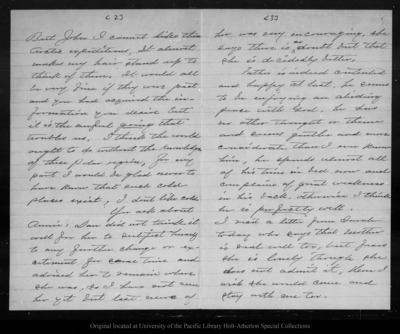 But John I cannot like this
Arctic expedition, It almost
makes my hair stand up to
think of them. It would all
be very fine if they were past
and you had acquired the in-
formation you desire but
it is the awful going that
troubles me. I think the world
ought to do without the knowledge
of those Polar regions, for my
part I would be glad never to
have known that such cold
places exist, I don't like cold.
You ask about
Annie: Dan did not think it
well for her to subject herself
to any further change or ex-
citement for some time and
advised her to remain where
she was, so I have not seen
her yet but last news of
her was very encouraging, she
says there is no doubt but that
she is decidedly better.
Father is indeed contented
and happy at last, he seems
to be enjoying an abiding
peace with God. he has
no other thought or theme
and seems gentler and more
considerate than I ever knew
him, he spends almost all
of his time in bed now and
complains of great weakness
in his back otherwise I think
he is perfectly well.
I had a letter from Sarah
today who says that Mother
is well too, but fears
she is lonely though she
does not admit it, How I
wish she would come and
stay with me too.
Original located at University of the Pacific Library Holt-Atherton Special Collections